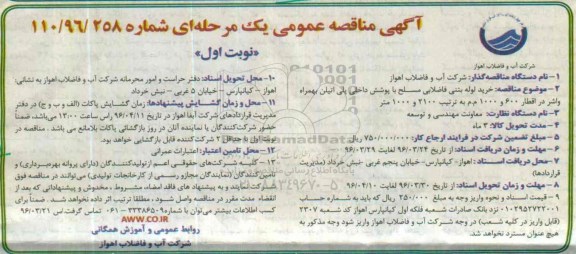 آگهی مناقصه عمومی یک مرحله‌ای شماره ۲۵۸ /۱۱۰/۹۶
«نوبت اول»
شرکت آب و فاضلاب اهواز
۱- نام دستگاه مناقصه‌گذار: شرکت آب و فاضلاب اهواز
۲- موضوع مناقصه: خرید لوله بتنی فاضلابی مسلح با پوشش داخلی پلی اتیلن بهمراه
واشر در اقطار ۶۰۰ و ۱۰۰۰ م.م به ترتیب ۲۱۰۰ و ۱۰۰۰ متر
۳- نام دستگاه نظارت: معاونت مهندسی و توسعه
۴- مدت تحویل کالا: ۳ ماه
۵- مبلغ تضمین شرکت در فرآیند ارجاع کار: ۷۵۰/۰۰۰/۰۰۰ ریال
۶- مهلت و زمان دریافت اسناد: از تاریخ ۹۶/۰۳/۲۴ لغایت ۹۶/۰۳/۲۹
۷- محل دریافت اسناد: اهواز- کیانپارس- خیابان پنجم غربی -نبش خرداد (مدیریت
قراردادها)
۸- مهلت و زمان تحویل اسناد: از تاریخ ۹۶/۰۳/۳۰ لغایت ۹۶/۰۴/۱۰
۹- قیمت اسناد و نحوه واریز وجه به مبلغ ۲۵۰/۰۰۰ ریال که باید به شماره حساب
۰۱۰۲۹۵۲۷۲۲۰۰۱ نزد بانک صادرات شعبه فلکه اول کیانپارس اهواز کد شعبه ۲۳۰۷
(قابل واریز در کلیه شعب) در وجه شرکت آب و فاضلاب اهواز واریز شود وجه مذکور به
هیچ عنوان مسترد نخواهد شد.
۱۰- محل تحویل اسناد: دفتر حراست و امور محرمانه شرکت آب و فاضلاب اهواز به نشانی:
اهواز – کیانپارس – خیابان ۵ غربی – نبش خرداد
۱۱- محل و زمان گشایش پیشنهادها: زمان گشایش پاکات (الف و ب و ج) در دفتر
مدیریت قراردادهای شرکت آبفا اهواز در تاریخ ۹۶/۰۴/۱۱ راس ساعت ۱۳:۰۰ می‌باشد، ضمنا
حضور شرکت‌کنندگان یا نماینده آنان در روز بازگشائی پاکات بلامانع می باشد. مناقصه در
نوبت اول با حداقل ۲ شرکت کننده قابل بازگشایی خواهد بود.
۱۲- محل تامین اعتبار: اعتبارات عمرانی
۱۳- کلیه شرکت‌های حقوقی اعم از تولیدکنندگان (دارای پروانه بهره‌برداری) و
تامین کنندگان (نمایندگان مجاز رسمی از کارخانجات تولیدی) می‌توانند در مناقصه فوق
شرکت نمایند و به پیشنهاد های فاقد امضاء، مشروط ، مخدوش و پیشنهاداتی که بعد از
انقضاء مدت مقرر در مناقصه واصل شود، مطلقا ترتیب اثر داده نخواهد شد. ضمنا برای
کسب اطلاعات بیشتر می‌توان با شماره ۳۳۳۸۶۵۹۰-۰۶۱ تماس گرفت. س ۹۶/۰۳/۲۱
WWW.AWW.CO.IR
روابط عمومی و آموزش همگانی
شرکت آب و فاضلاب اهواز